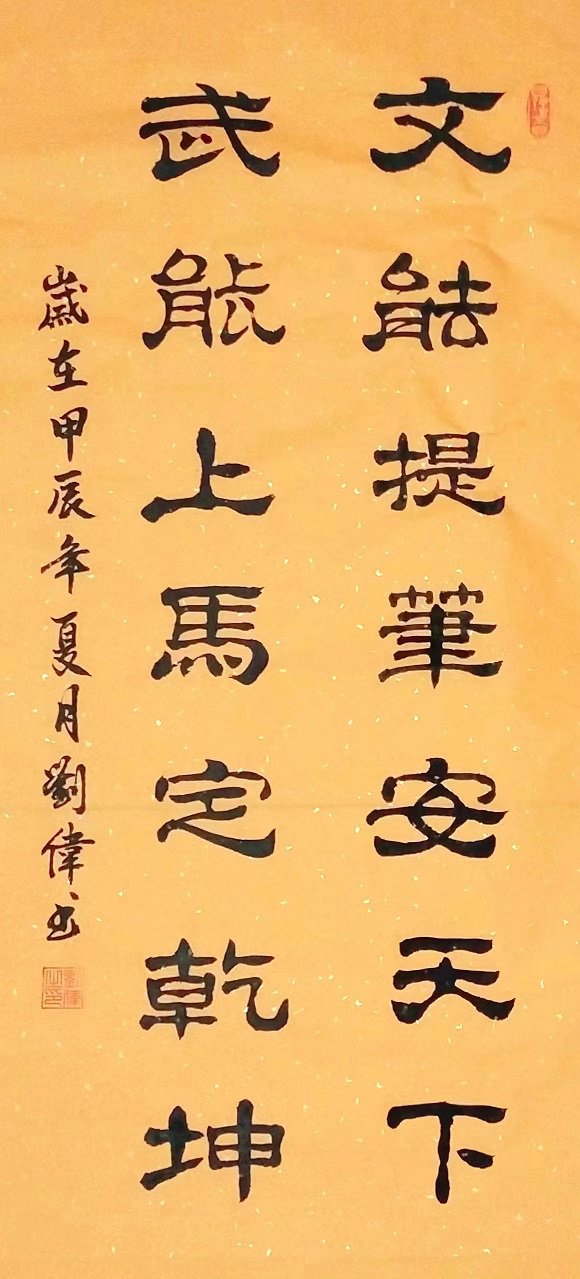 文能提筆安天下
武能上馬定乾坤
歲在甲辰年夏月劉偉書
劉偉之印